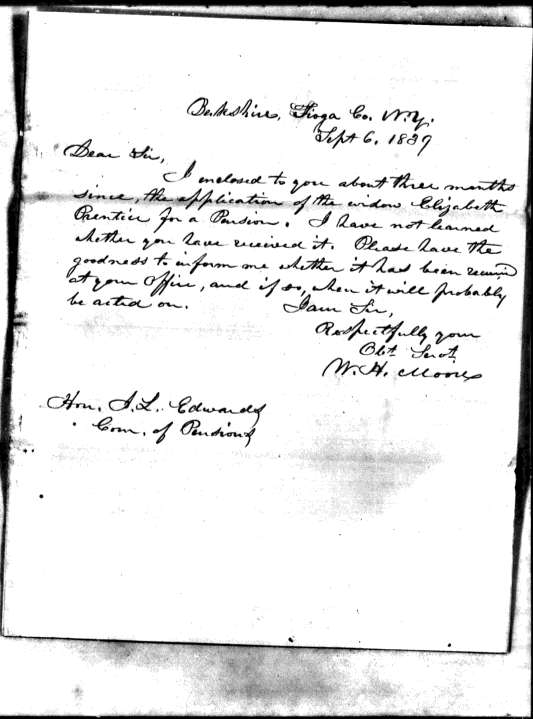 Berkshire, Tioga Co. N.Y.
Sept 6, 1837
Dear Sir,
I enclosed to you about three months
since, the application of the widow Elizabeth
Prentice for a Pension. I have not learned
whether you have received it. Please have the
goodness to inform me whether it has been received
at your Office, and if so, when it will probably
be acted on. I am Sir,
Respectfully your
Obt. Servt.
W. H. Moore
Hon. J. L. Edwards
Com. of Pensions